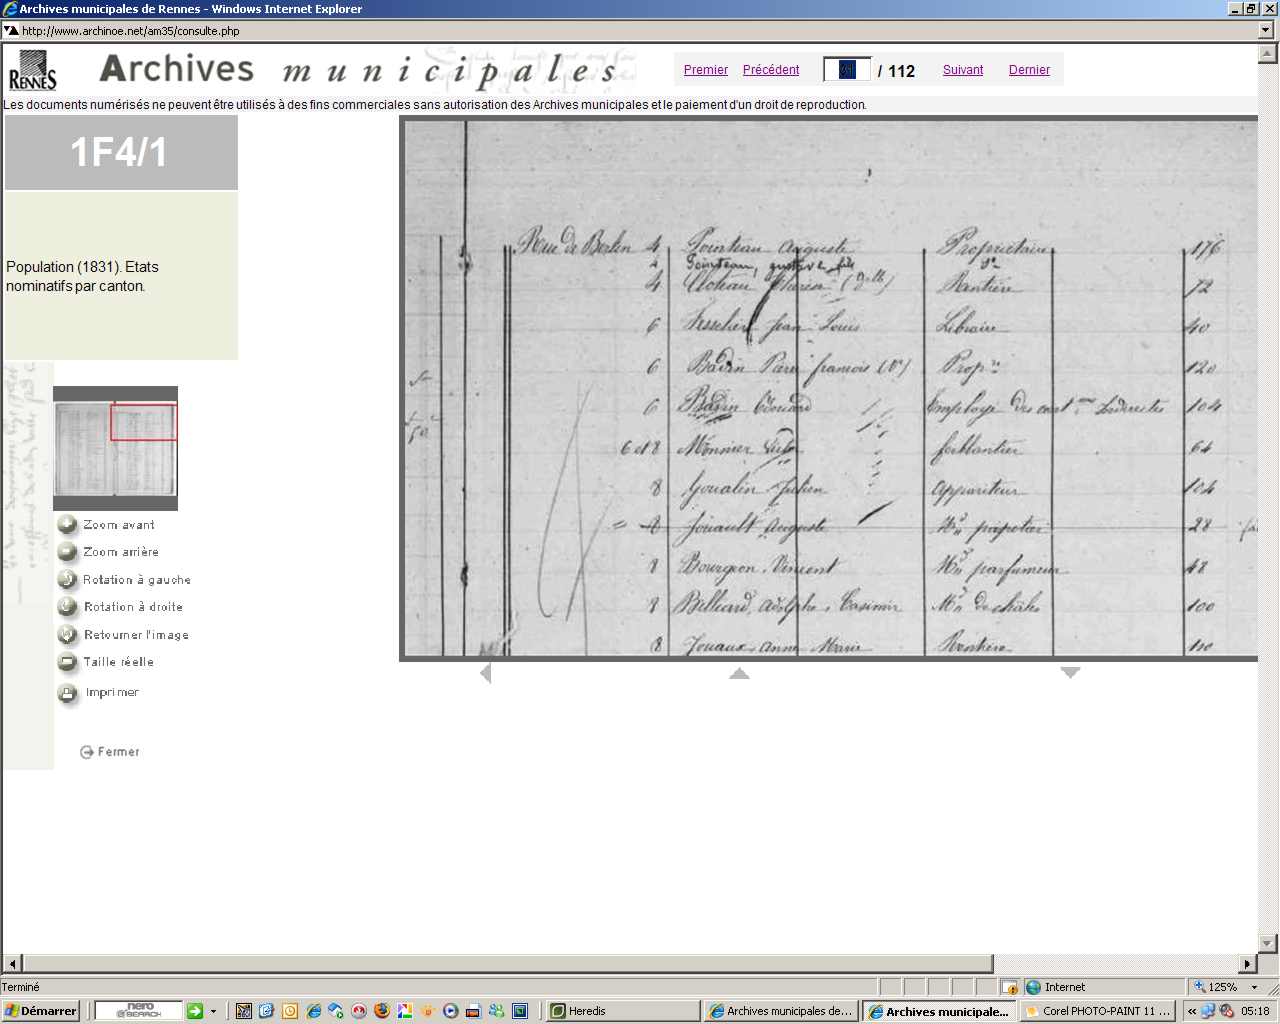 Archives municipales de Rennes - Windows Internet Explorer
http://www.archinoe.net/am35/consulte.php
RENNES
Archives municipales
Premier Précédent / 112 Suivant Dernier
Les documents numérisés ne peuvent être utilisés à des fins commerciales sans autorisation des Archives municipales et le paiement d'un droit de reproduction.
1F4/1
Population (1831). Etats
nominatifs par canton.
Zoom avant
Zoom arrière
Rotation à gauche
Rotation à droite
Retourner l'image
Taille réelle
Imprimer
Fermer
Rue de Berlin 4 Pointeau Auguste Propriétaire 176
Pointeau, gustave fils
4 (Dlle) Rentière 72
6 Jean Louis Libraire 40
6 Badin françois (Ve) Propre 120
6 Badin Edouard Employé des contons Indirectes 104
6 et 8 Monnier ferblantier 64
8 Goualin Julien appariteur 104
8 Jouault Auguste Md papetier 28
8 Bourgeon Vincent Md parfumeur 48
8 Belliard, adolphe Casimir Md de châles 100
8 Jouaux anne Marie Rentière 110
Terminé
Internet
125%
Démarrer
nero
SEARCH
Heredis
Archives municipales de...
Archives municipale...
Corel PHOTO-PAINT 11 ...
05:18